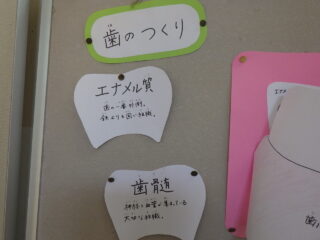 歯のつくり
エナメル質
歯の一番外側。
鉄よりも固い組織。
歯髄
神経と血管が集まっている
大切な組織。